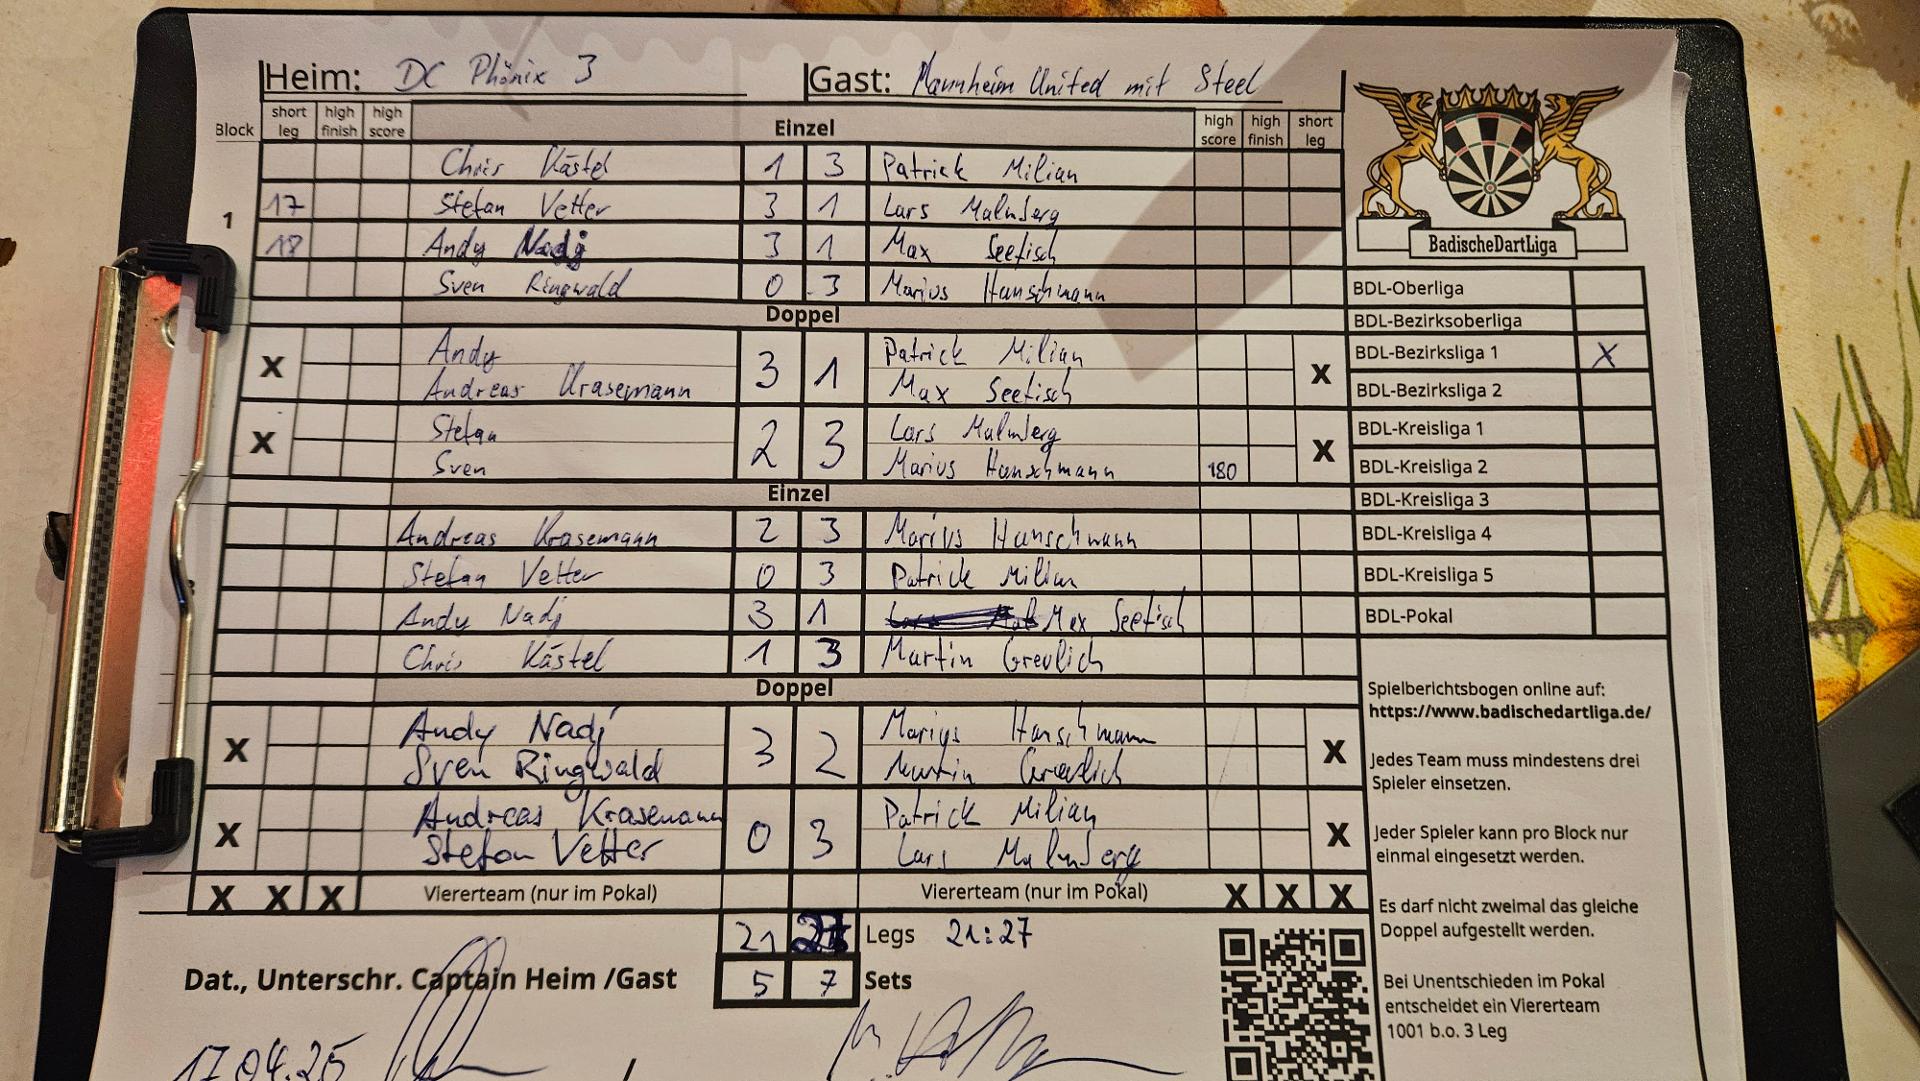 Heim: DC Phönix 3 Gast: Mannheim United mit Steel
Block short leg high finish high score Einzel high score high finish short leg
Chris Kästel 1 3 Patrick Milian
1 17 Stefan Vetter 3 1 Lars Malmberg
18 Andy Nadj 3 1 Max Seefisch
Sven Ringwald 0 3 Marius Hanschmann
Doppel
X Andy 3 1 Patrick Milian X
Andreas Krasemann Max Seefisch
X Stefan 2 3 Lars Malmberg X
Sven Marius Hanschmann 180
Einzel
Andreas Krasemann 2 3 Marius Hanschmann
Stefan Vetter 0 3 Patrick Milian
Andy Nadj 3 1 Max Seefisch
Chris Kästel 1 3 Martin Greulich
Doppel
X Andy Nadj 3 2 Marius Hanschmann X
Sven Ringwald Martin Greulich
X Andreas Krasemann 0 3 Patrick Milian X
Stefan Vetter Lars Malmberg
X X X Viererteam (nur im Pokal) Viererteam (nur im Pokal) X X X
21 27 Legs 21:27
Dat., Unterschr. Captain Heim /Gast 5 7 Sets
17.04.25 /
BadischeDartLiga
BDL-Oberliga
BDL-Bezirksoberliga
BDL-Bezirksliga 1 X
BDL-Bezirksliga 2
BDL-Kreisliga 1
BDL-Kreisliga 2
BDL-Kreisliga 3
BDL-Kreisliga 4
BDL-Kreisliga 5
BDL-Pokal
Spielberichtsbogen online auf:
https://www.badischedartliga.de/
Jedes Team muss mindestens drei
Spieler einsetzen.
Jeder Spieler kann pro Block nur
einmal eingesetzt werden.
Es darf nicht zweimal das gleiche
Doppel aufgestellt werden.
Bei Unentschieden im Pokal
entscheidet ein Viererteam
1001 b.o. 3 Leg